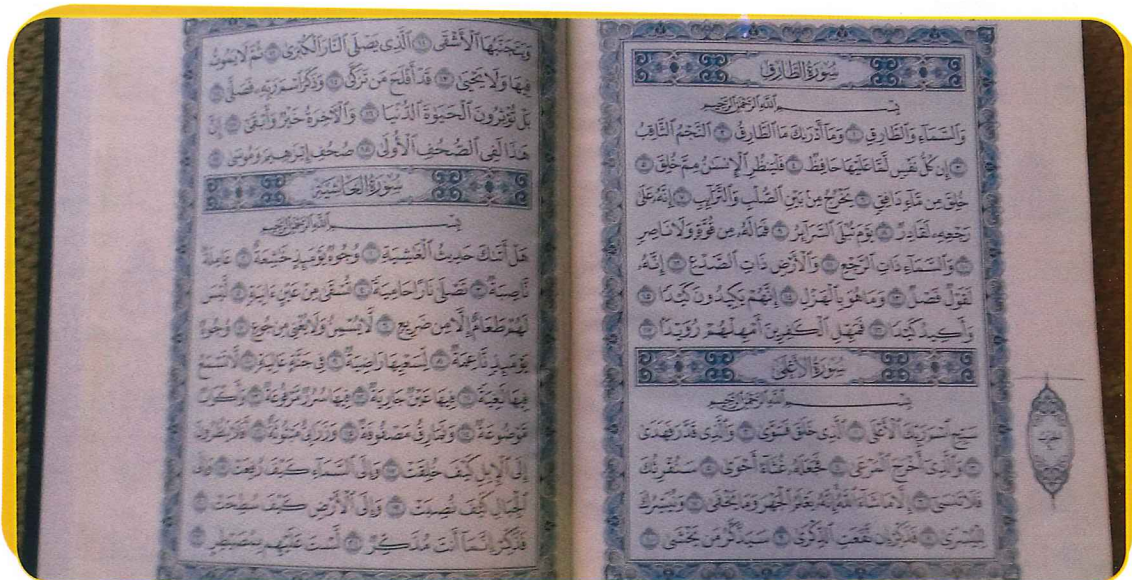 سُورَةُ الطَّارِقِ
بِسْمِ اللَّهِ الرَّحْمَٰنِ الرَّحِيمِ
وَالسَّمَاءِ وَالطَّارِقِ ١ وَمَا أَدْرَىٰكَ مَا الطَّارِقُ ٢ النَّجْمُ الثَّاقِبُ
٣ إِن كُلُّ نَفْسٍ لَّمَّا عَلَيْهَا حَافِظٌ ٤ فَلْيَنظُرِ الْإِنسَٰنُ مِمَّ خُلِقَ ٥
خُلِقَ مِن مَّاءٍ دَافِقٍ ٦ يَخْرُجُ مِنْ بَيْنِ الصُّلْبِ وَالتَّرَائِبِ ٧ إِنَّهُ عَلَىٰ
رَجْعِهِ لَقَادِرٌ ٨ يَوْمَ تُبْلَى السَّرَائِرُ ٩ فَمَا لَهُ مِن قُوَّةٍ وَلَا نَاصِرٍ
١٠ وَالسَّمَاءِ ذَاتِ الرَّجْعِ ١١ وَالْأَرْضِ ذَاتِ الصَّدْعِ ١٢ إِنَّهُ
لَقَوْلٌ فَصْلٌ ١٣ وَمَا هُوَ بِالْهَزْلِ ١٤ إِنَّهُمْ يَكِيدُونَ كَيْدًا ١٥
وَأَكِيدُ كَيْدًا ١٦ فَمَهِّلِ الْكَٰفِرِينَ أَمْهِلْهُمْ رُوَيْدًا ١٧
سُورَةُ الْأَعْلَىٰ
بِسْمِ اللَّهِ الرَّحْمَٰنِ الرَّحِيمِ
سَبِّحِ اسْمَ رَبِّكَ الْأَعْلَى ١ الَّذِي خَلَقَ فَسَوَّىٰ ٢ وَالَّذِي قَدَّرَ فَهَدَىٰ
٣ وَالَّذِي أَخْرَجَ الْمَرْعَىٰ ٤ فَجَعَلَهُ غُثَاءً أَحْوَىٰ ٥ سَنُقْرِئُكَ
فَلَا تَنسَىٰ ٦ إِلَّا مَا شَاءَ اللَّهُ إِنَّهُ يَعْلَمُ الْجَهْرَ وَمَا يَخْفَىٰ ٧ وَنُيَسِّرُكَ
لِلْيُسْرَىٰ ٨ فَذَكِّرْ إِن نَّفَعَتِ الذِّكْرَىٰ ٩ سَيَذَّكَّرُ مَن يَخْشَىٰ ١٠
وَيَتَجَنَّبُهَا الْأَشْقَى ١١ الَّذِي يَصْلَى النَّارَ الْكُبْرَىٰ ١٢ ثُمَّ لَا يَمُوتُ
فِيهَا وَلَا يَحْيَىٰ ١٣ قَدْ أَفْلَحَ مَن تَزَكَّىٰ ١٤ وَذَكَرَ اسْمَ رَبِّهِ فَصَلَّىٰ ١٥
بَلْ تُؤْثِرُونَ الْحَيَوٰةَ الدُّنْيَا ١٦ وَالْآخِرَةُ خَيْرٌ وَأَبْقَىٰ ١٧ إِنَّ
هَٰذَا لَفِي الصُّحُفِ الْأُولَىٰ ١٨ صُحُفِ إِبْرَٰهِيمَ وَمُوسَىٰ ١٩
سُورَةُ الْغَاشِيَةِ
بِسْمِ اللَّهِ الرَّحْمَٰنِ الرَّحِيمِ
هَلْ أَتَىٰكَ حَدِيثُ الْغَٰشِيَةِ ١ وُجُوهٌ يَوْمَئِذٍ خَٰشِعَةٌ ٢ عَامِلَةٌ
نَّاصِبَةٌ ٣ تَصْلَىٰ نَارًا حَامِيَةً ٤ تُسْقَىٰ مِنْ عَيْنٍ ءَانِيَةٍ ٥ لَّيْسَ
لَهُمْ طَعَامٌ إِلَّا مِن ضَرِيعٍ ٦ لَّا يُسْمِنُ وَلَا يُغْنِي مِن جُوعٍ ٧ وُجُوهٌ
يَوْمَئِذٍ نَّاعِمَةٌ ٨ لِّسَعْيِهَا رَاضِيَةٌ ٩ فِي جَنَّةٍ عَالِيَةٍ ١٠ لَّا تَسْمَعُ
فِيهَا لَٰغِيَةً ١١ فِيهَا عَيْنٌ جَارِيَةٌ ١٢ فِيهَا سُرُرٌ مَّرْفُوعَةٌ ١٣ وَأَكْوَابٌ
مَّوْضُوعَةٌ ١٤ وَنَمَارِقُ مَصْفُوفَةٌ ١٥ وَزَرَابِيُّ مَبْثُوثَةٌ ١٦ أَفَلَا يَنظُرُونَ
إِلَى الْإِبِلِ كَيْفَ خُلِقَتْ ١٧ وَإِلَى السَّمَاءِ كَيْفَ رُفِعَتْ ١٨ وَإِلَى
الْجِبَالِ كَيْفَ نُصِبَتْ ١٩ وَإِلَى الْأَرْضِ كَيْفَ سُطِحَتْ ٢٠
فَذَكِّرْ إِنَّمَا أَنتَ مُذَكِّرٌ ٢١ لَّسْتَ عَلَيْهِم بِمُصَيْطِرٍ ٢٢